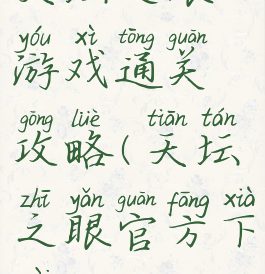 yóu xì tōng guān
游戏通关
gōng lüè tiān tán
攻略(天坛
zhī yǎn guān fāng xià
之眼官方下